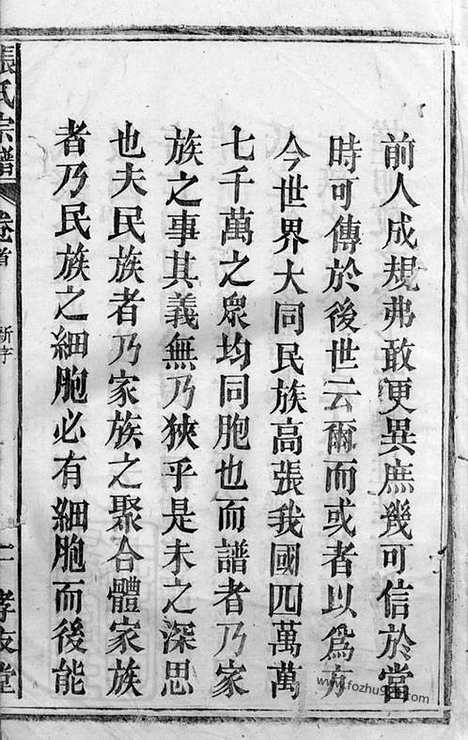 前人成規弗敢更異庶幾可信於當
時可傳於後世云爾而或者以爲方
今世界大同民族高張我國四萬萬
七千萬之衆均同胞也而譜者乃家
族之事其義無乃狹乎是未之深思
也夫民族者乃家族之聚合體家族
者乃民族之細胞必有細胞而後能
張氏宗譜 卷首 新序 二 孝友堂